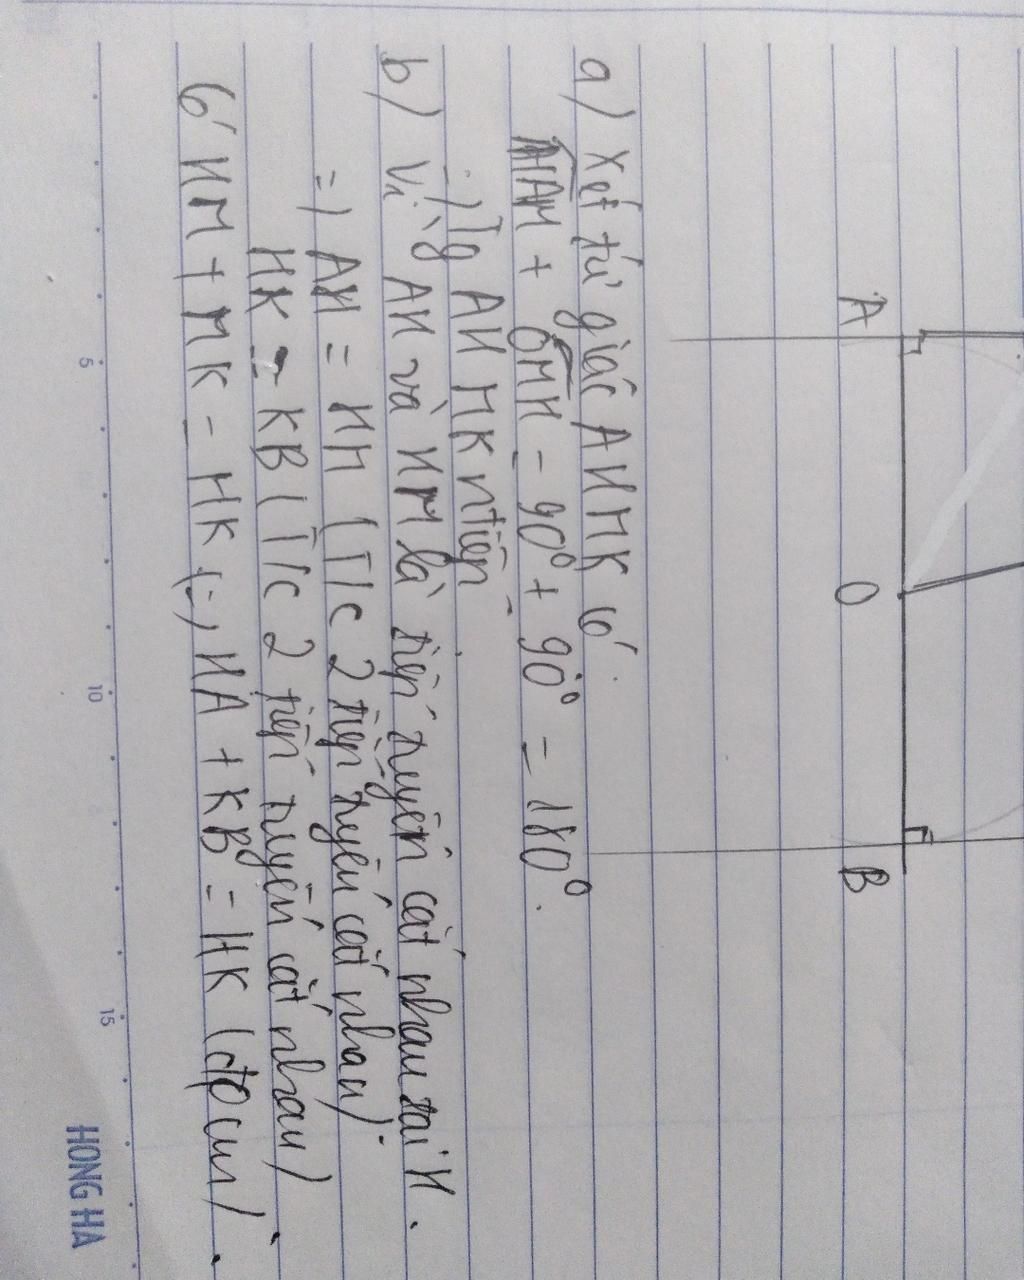 A
O
B
a) Xét tứ giác AHMK có
HAM + OMH = 90° + 90° = 180°.
=) Tg AHMK ntiếp
b) Vì AH và HM là tiếp tuyến cắt nhau tại H.
=) AH = HM (T/c 2 tiếp tuyến cắt nhau).
HK = KB (T/c 2 tiếp tuyến cắt nhau)
Có HM + MK = HK (=) HA + KB = HK (đpcm).
5
10
15
HONG HA